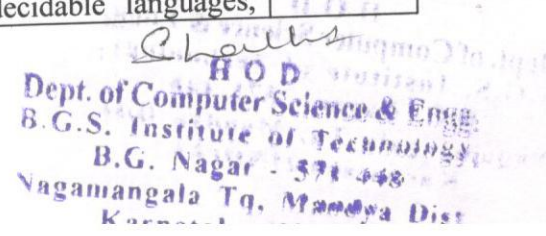 decidable languages,
H O D
Dept. of Computer Science & Engg.
B.G.S. Institute of Technology
B.G. Nagar - 571 448
Nagamangala Tq, Mandya Dist